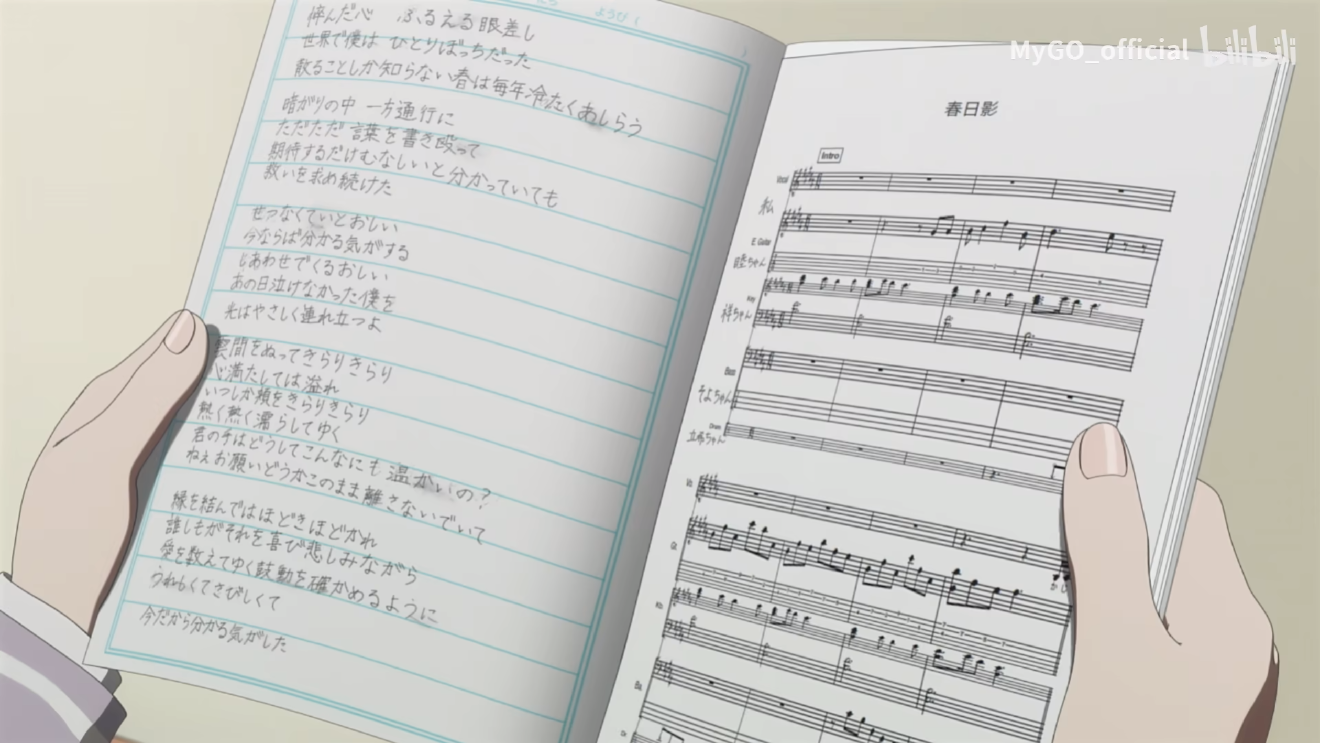 ようび
悴んだ心 ふるえる眼差し
世界で僕は ひとりぼっちだった
散ることしか知らない春は毎年冷たくあしらう
暗がりの中 一方通行に
ただただ 言葉を書き殴って
期待するだけむなしいと分かっていても
救いを求め続けた
せつなくていとおしい
今ならば分かる気がする
しあわせでくるおしい
あの日泣けなかった僕を
光はやさしく連れ立つよ
雲間をぬってきらりきらり
心満たしては溢れ
いつしか頬をきらりきらり
熱く熱く濡らしてゆく
君の手はどうしてこんなにも温かいの?
ねぇお願いどうかこのまま離さないでいて
縁を結んではほどきほどかれ
誰しもがそれを喜び悲しみながら
愛を数えてゆく鼓動を確かめるように
うれしくてさびしくて
今だから分かる気がした
MyGO_official bilibili
春日影
Intro
Vocal
私
E.Guitar
睦ちゃん
Key
祥ちゃん
Bass
そよちゃん
Drum
立希ちゃん
Vo.
Gt.
か し
Kb.
Ba.
Dr.